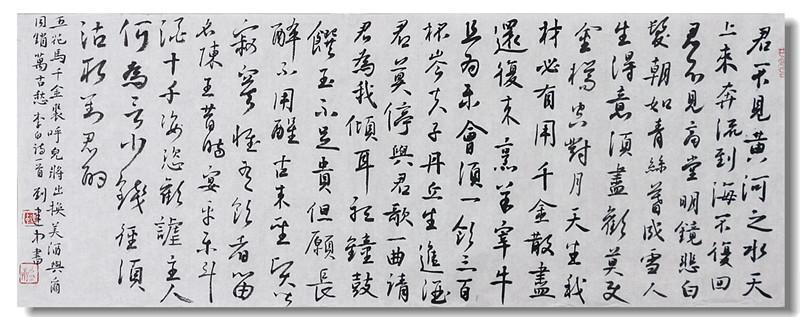 君不見黃河之水天
上來奔流到海不復回
君不見高堂明鏡悲白
髮朝如青絲暮成雪人
生得意須盡歡莫使
金樽空對月天生我
材必有用千金散盡
還復來烹羊宰牛
且為樂會須一飲三百
杯岑夫子丹丘生進酒
君莫停與君歌一曲請
君為我傾耳聽鐘鼓
饌玉不足貴但願長
醉不用醒古來聖賢皆
寂寞惟有飲者留
名陳王昔時宴平樂斗
酒十千恣歡謔主人
何為言少錢徑須
沽取對君酌
五花馬千金裘呼兒將出換美酒與爾
同銷萬古愁 李白詩一首 劉建書